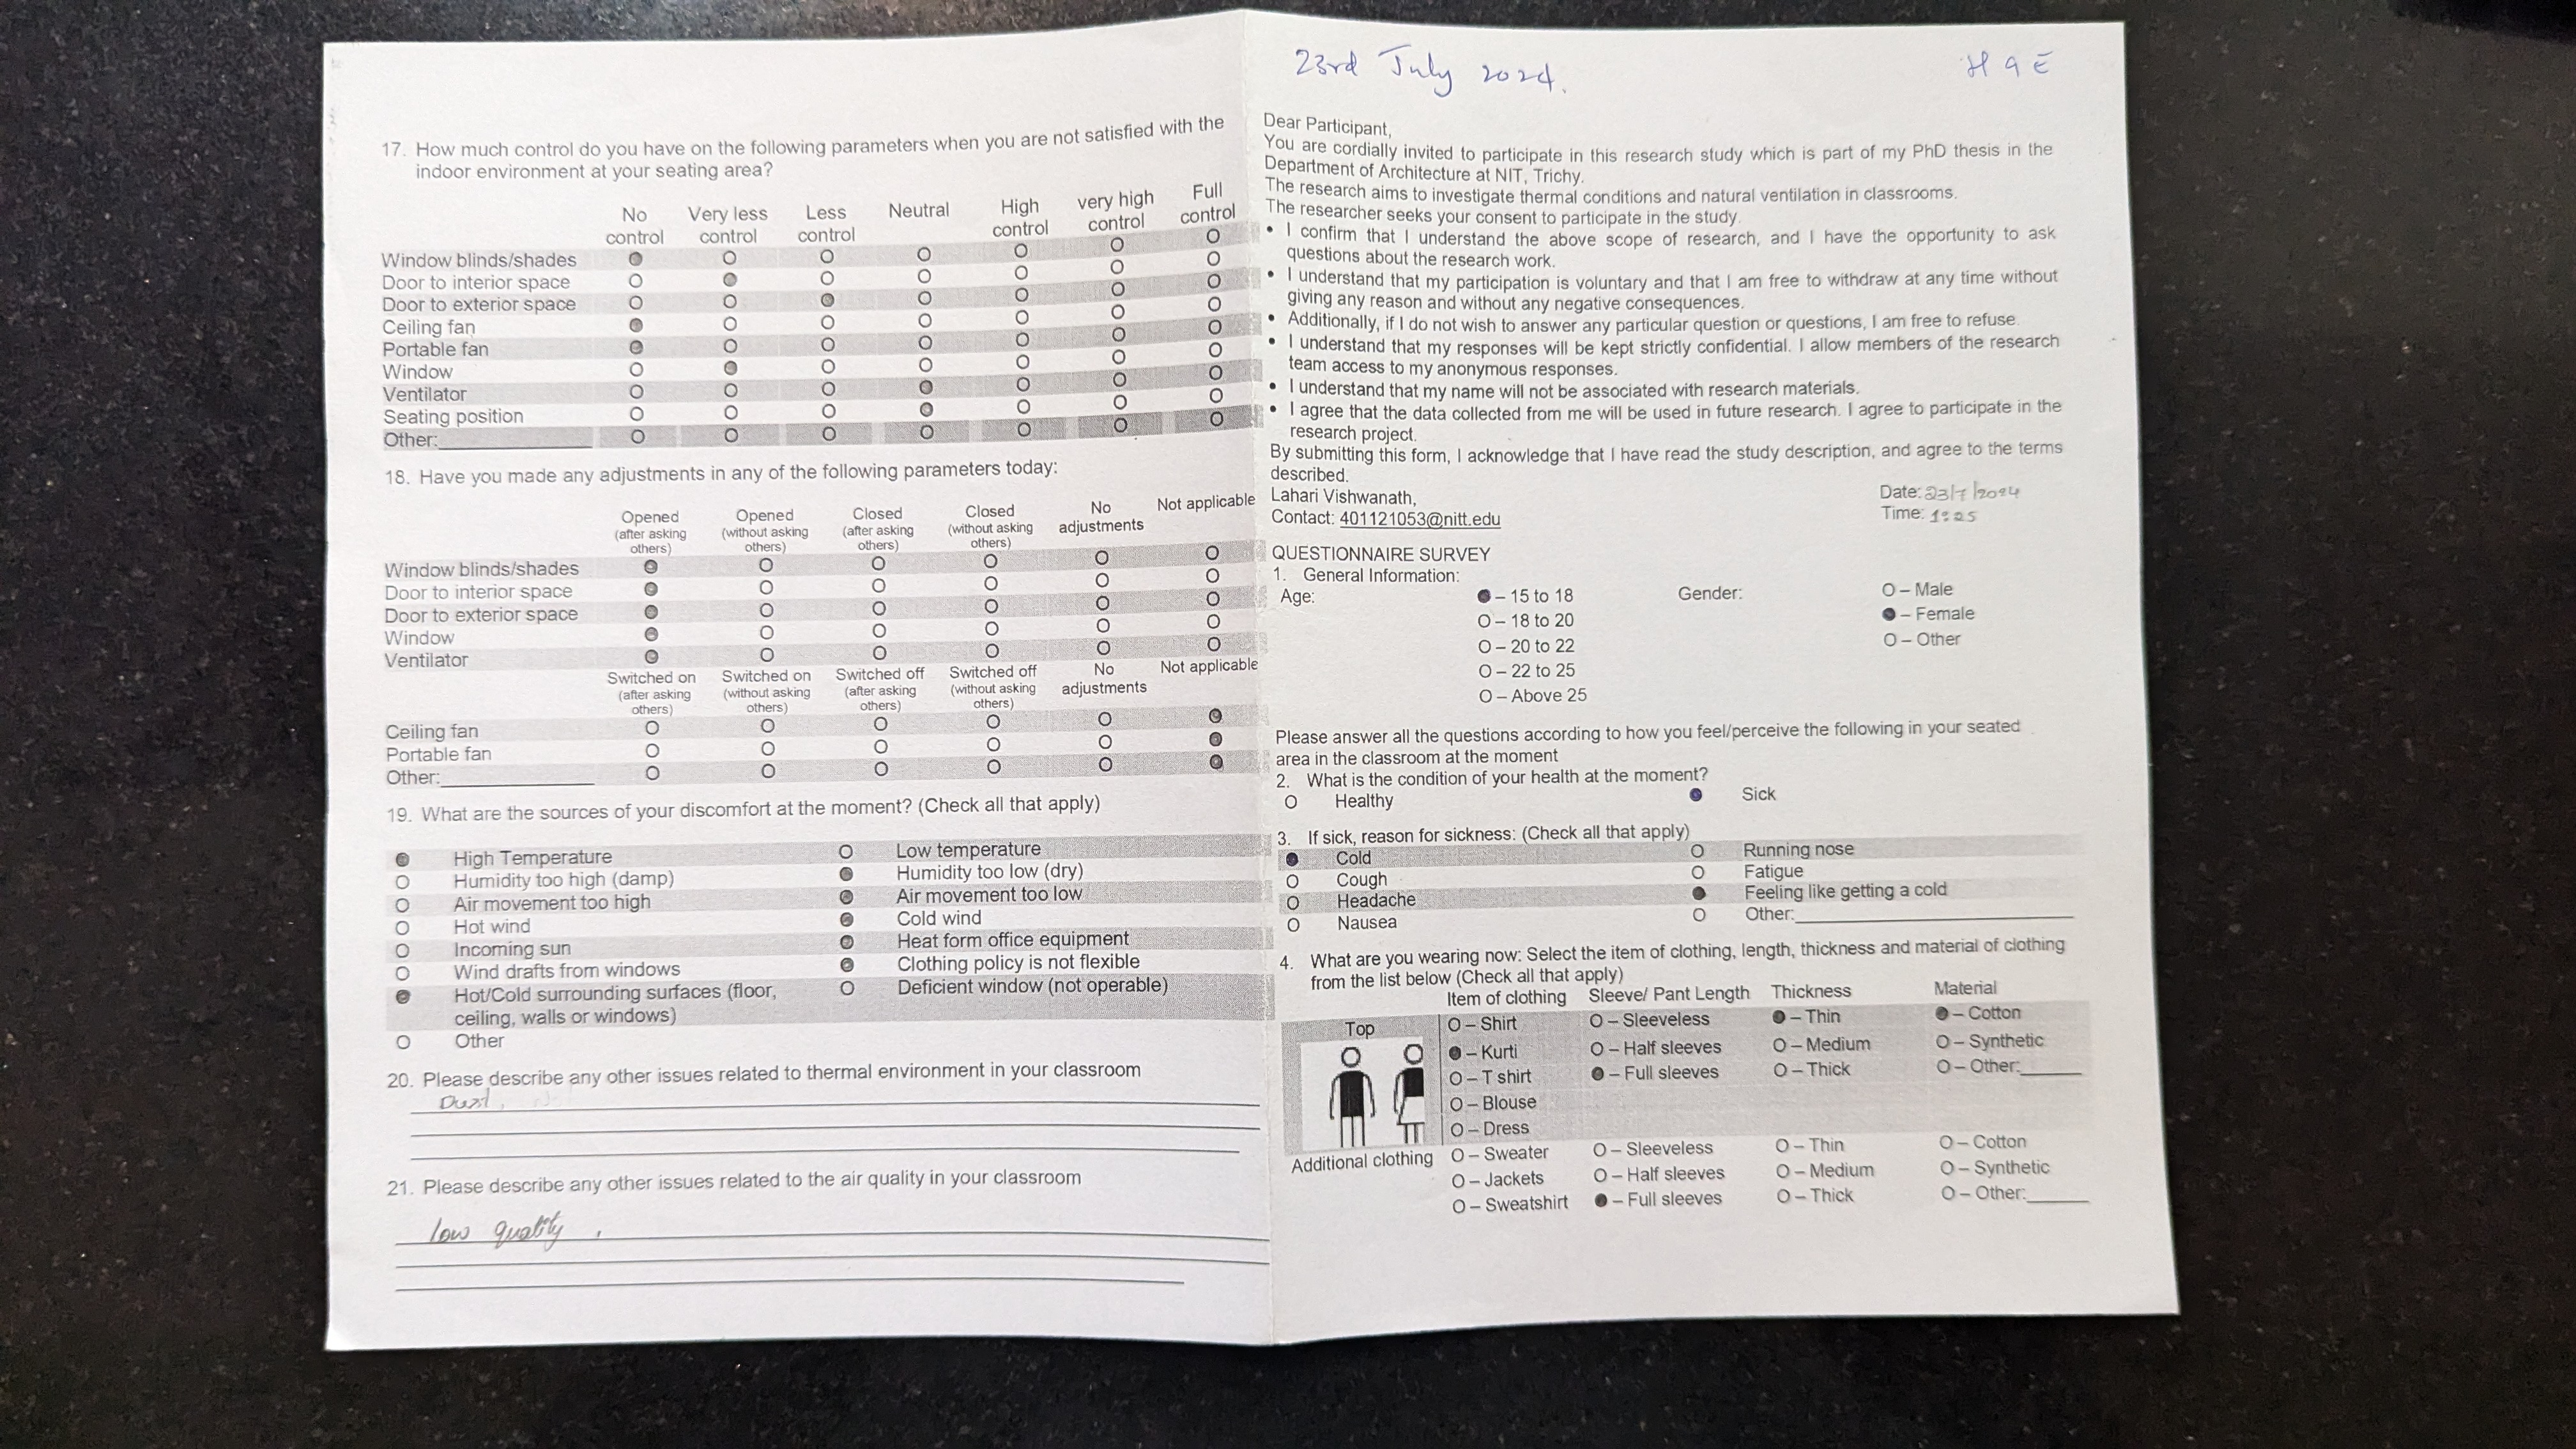 17. How much control do you have on the following parameters when you are not satisfied with the
indoor environment at your seating area?
No control Very less control Less control Neutral High control very high control Full control
Window blinds/shades ● O O O O O O
Door to interior space O ● O O O O O
Door to exterior space O O ● O O O O
Ceiling fan ● O O O O O O
Portable fan ● O O O O O O
Window O ● O O O O O
Ventilator O O O ● O O O
Seating position O O O ● O O O
Other:__________ O O O O O O O
18. Have you made any adjustments in any of the following parameters today:
Opened (after asking others) Opened (without asking others) Closed (after asking others) Closed (without asking others) No adjustments Not applicable
Window blinds/shades ● O O O O O
Door to interior space ● O O O O O
Door to exterior space ● O O O O O
Window ● O O O O O
Ventilator ● O O O O O
Switched on (after asking others) Switched on (without asking others) Switched off (after asking others) Switched off (without asking others) No adjustments Not applicable
Ceiling fan O O O O O ●
Portable fan O O O O O ●
Other:__________ O O O O O ●
19. What are the sources of your discomfort at the moment? (Check all that apply)
● High Temperature O Low temperature
O Humidity too high (damp) ● Humidity too low (dry)
O Air movement too high ● Air movement too low
O Hot wind ● Cold wind
O Incoming sun ● Heat form office equipment
O Wind drafts from windows ● Clothing policy is not flexible
● Hot/Cold surrounding surfaces (floor, O Deficient window (not operable)
ceiling, walls or windows)
O Other
20. Please describe any other issues related to thermal environment in your classroom
Dust,
21. Please describe any other issues related to the air quality in your classroom
low quality ,
23rd July 2024. H 9 E
Dear Participant,
You are cordially invited to participate in this research study which is part of my PhD thesis in the
Department of Architecture at NIT, Trichy.
The research aims to investigate thermal conditions and natural ventilation in classrooms.
The researcher seeks your consent to participate in the study.
• I confirm that I understand the above scope of research, and I have the opportunity to ask
questions about the research work.
• I understand that my participation is voluntary and that I am free to withdraw at any time without
giving any reason and without any negative consequences.
• Additionally, if I do not wish to answer any particular question or questions, I am free to refuse.
• I understand that my responses will be kept strictly confidential. I allow members of the research
team access to my anonymous responses.
• I understand that my name will not be associated with research materials.
• I agree that the data collected from me will be used in future research. I agree to participate in the
research project.
By submitting this form, I acknowledge that I have read the study description, and agree to the terms
described.
Lahari Vishwanath, Date: 23/7/2024
Contact: 401121053@nitt.edu Time: 1:25
QUESTIONNAIRE SURVEY
1. General Information:
Age: ● – 15 to 18 Gender: O – Male
O – 18 to 20 ● – Female
O – 20 to 22 O – Other
O – 22 to 25
O – Above 25
Please answer all the questions according to how you feel/perceive the following in your seated
area in the classroom at the moment
2. What is the condition of your health at the moment?
O Healthy ● Sick
3. If sick, reason for sickness: (Check all that apply)
● Cold O Running nose
O Cough O Fatigue
O Headache ● Feeling like getting a cold
O Nausea O Other:__________
4. What are you wearing now: Select the item of clothing, length, thickness and material of clothing
from the list below (Check all that apply)
Item of clothing Sleeve/ Pant Length Thickness Material
Top O – Shirt O – Sleeveless ● – Thin ● – Cotton
● – Kurti O – Half sleeves O – Medium O – Synthetic
O – T shirt ● – Full sleeves O – Thick O – Other:______
O – Blouse
O – Dress
Additional clothing O – Sweater O – Sleeveless O – Thin O – Cotton
O – Jackets O – Half sleeves O – Medium O – Synthetic
O – Sweatshirt ● – Full sleeves O – Thick O – Other:______